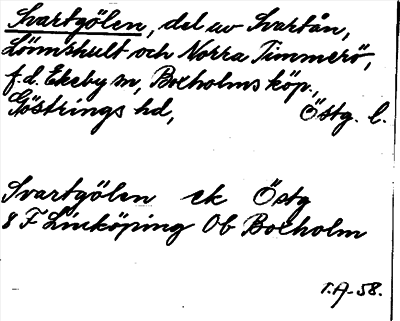 Svartgölen, del av Svartån,
Lönnshult och Norra Timmerö,
f.d. Ekeby sn, Boxholms köp.,
Göstrings hd, Östg. l.
Svartgölen ek Östg
8 F Linköping Ob Boxholm
T.A-58.